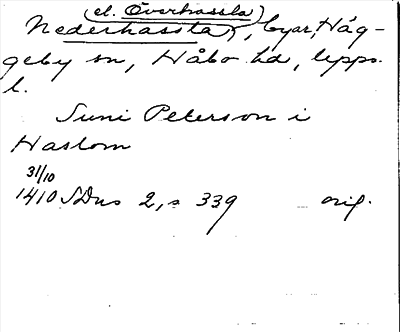 (el. Överhassla)
Nederhassla, byar, Häg-
geby sn, Håbo hd, Upps.
l.
Suni Peterson i
Haslom
31/10
1410 SDns 2, s 339 orig.